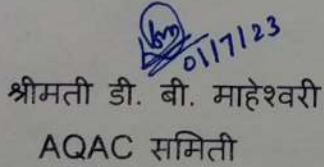 01/7/23
श्रीमती डी. बी. माहेश्वरी
AQAC समिती